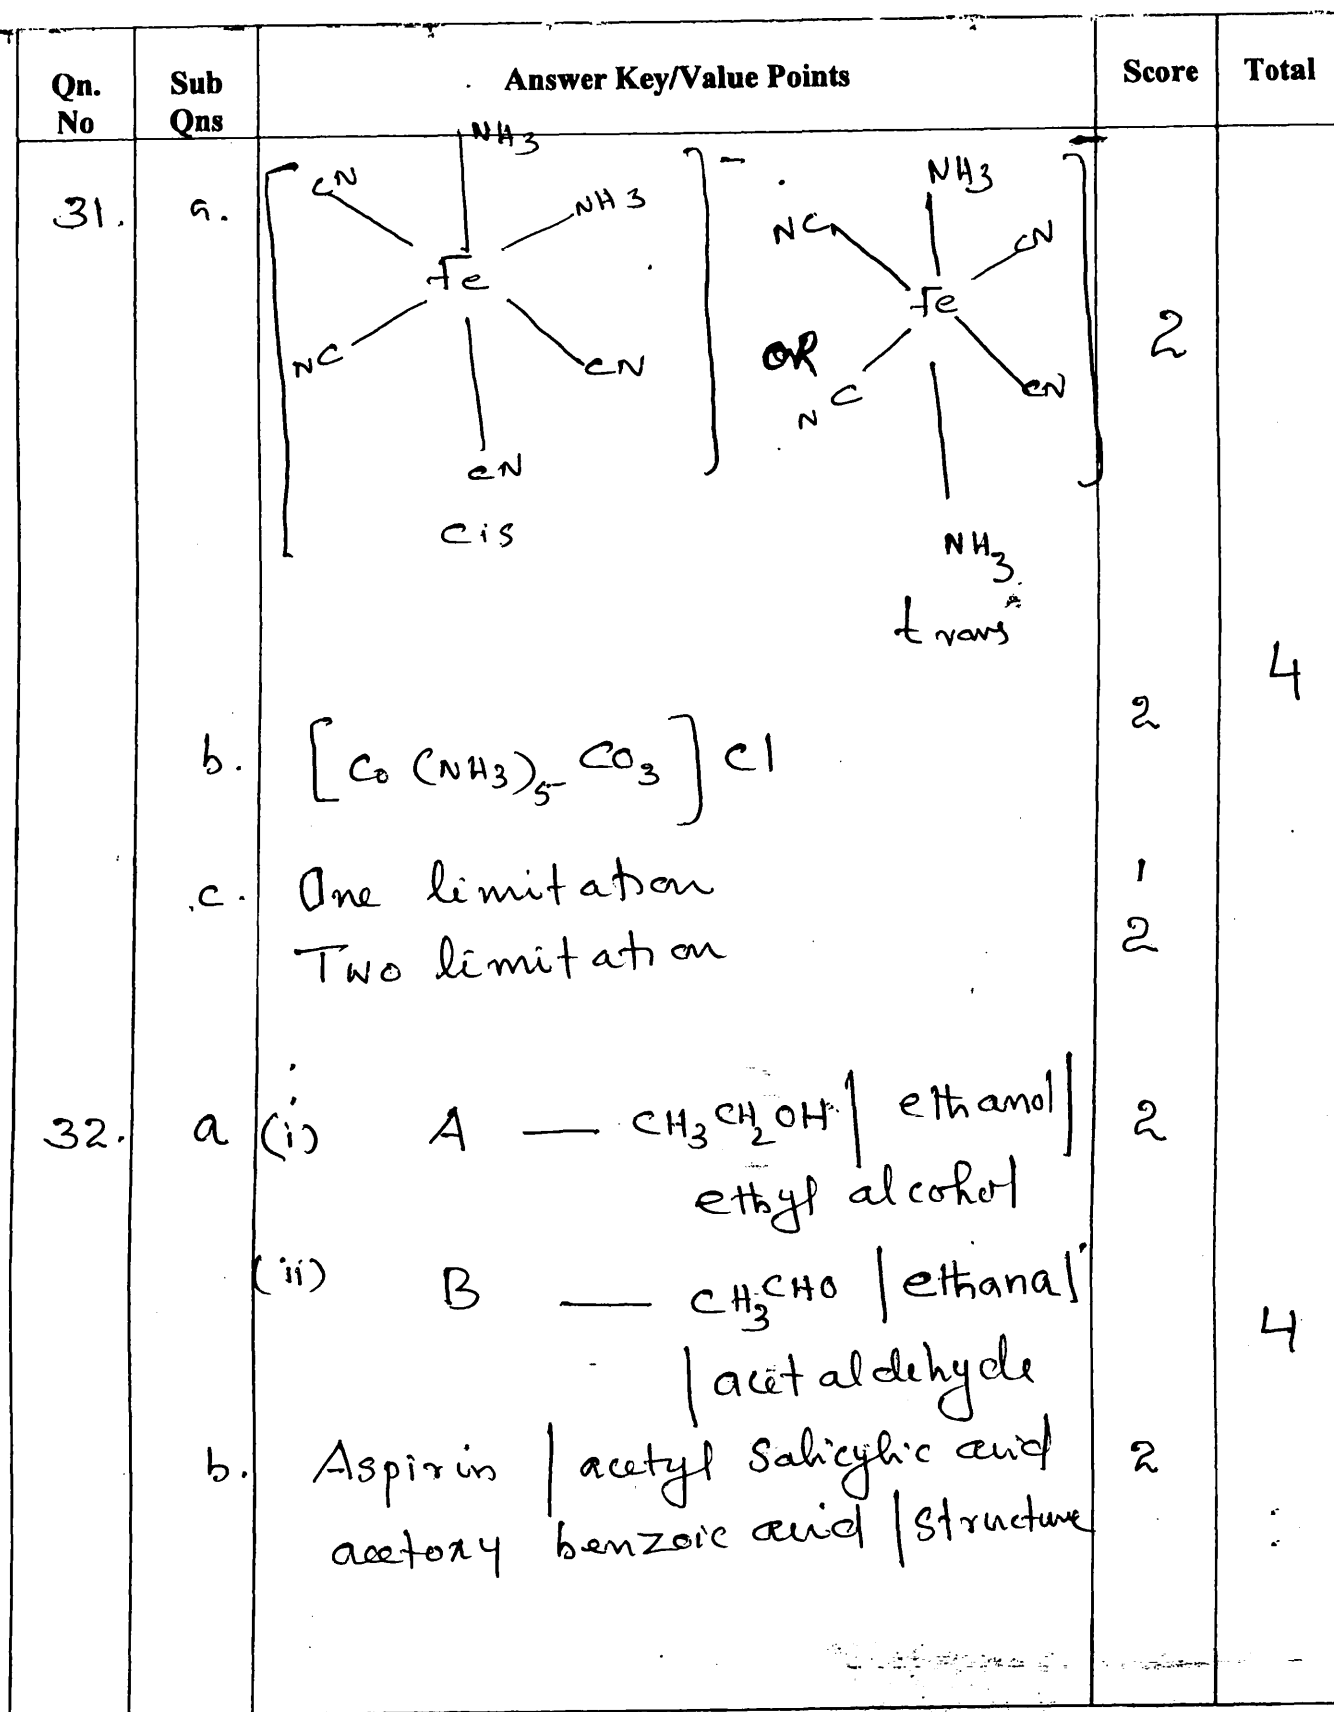 Qn. No Sub Qns Answer Key/Value Points Score Total
31. a. [ CN NH3 NH3 ]⁻ NH3
Fe NC CN
NC CN OR Fe 2
CN NC CN
cis NH3
trans
4
b. [Co (NH3)5 CO3] Cl 2
c. One limitation 1
Two limitation 2
32. a (i) A — CH3CH2OH | ethanol | 2
ethyl alcohol
(ii) B — CH3CHO | ethanal
4
| acetaldehyde
b. Aspirin | acetyl Salicylic acid 2
acetoxy benzoic acid | structure